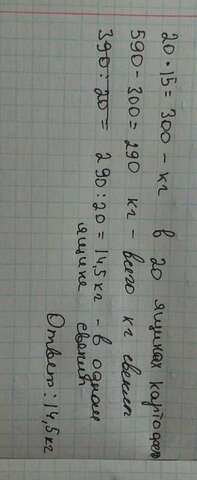 20 · 15 = 300 - кг в 20 ящиках картофел
590 - 300 = 290 кг - всего кг свеклы
390 : 20 = 290 : 20 = 14,5 кг - в одном
ящике свеклы
Ответ: 14,5 кг